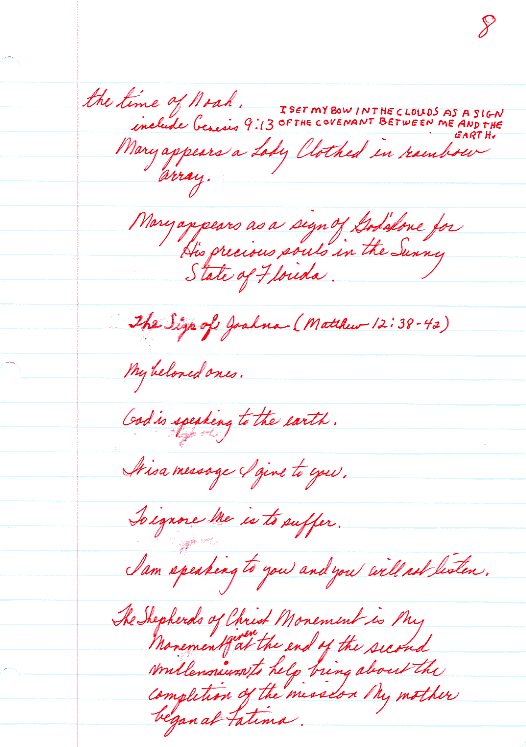 8
the time of Noah.
include Genesis 9:13 I SET MY BOW IN THE CLOUDS AS A SIGN
OF THE COVENANT BETWEEN ME AND THE
EARTH.
Mary appears a Lady Clothed in rainbow
array.
Mary appears as a sign of God's love for
His precious souls in the Sunny
State of Florida.
The Sign of Joahna (Matthew 12:38-42)
My beloved ones.
God is speaking to the earth.
It is a message I give to you.
To ignore Me is to suffer.
I am speaking to you and you will not listen.
The Shepherds of Christ Movement is My
Movement given at the end of the second
millennium to help bring about the
completion of the mission My mother
began at Fatima.